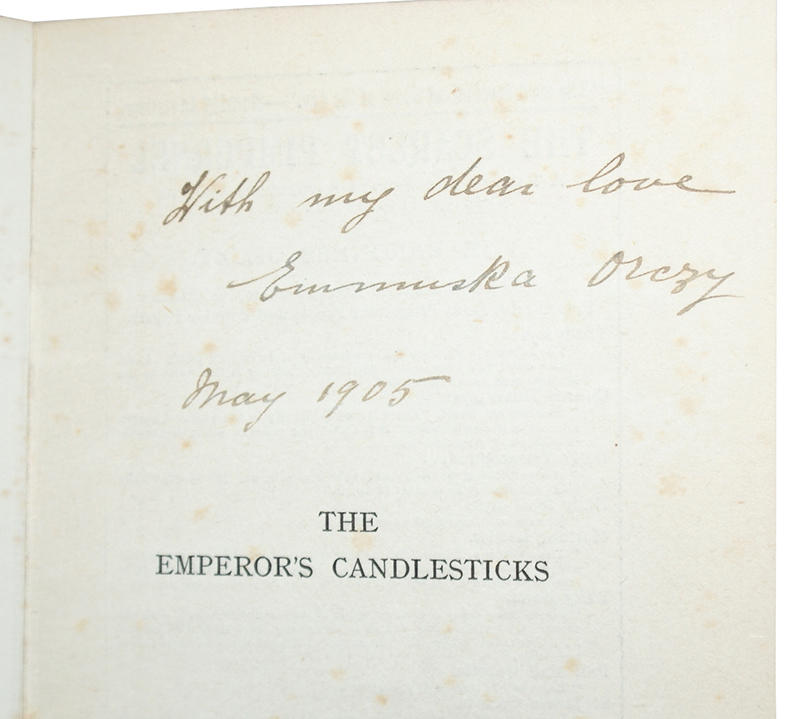 With my dear love
Emmuska Orczy
May 1905
THE
EMPEROR'S CANDLESTICKS